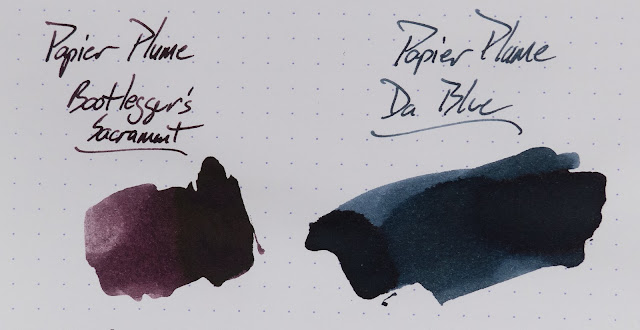 Papier Plume
Bootlegger's
Sacrament
Papier Plume
Da Blue